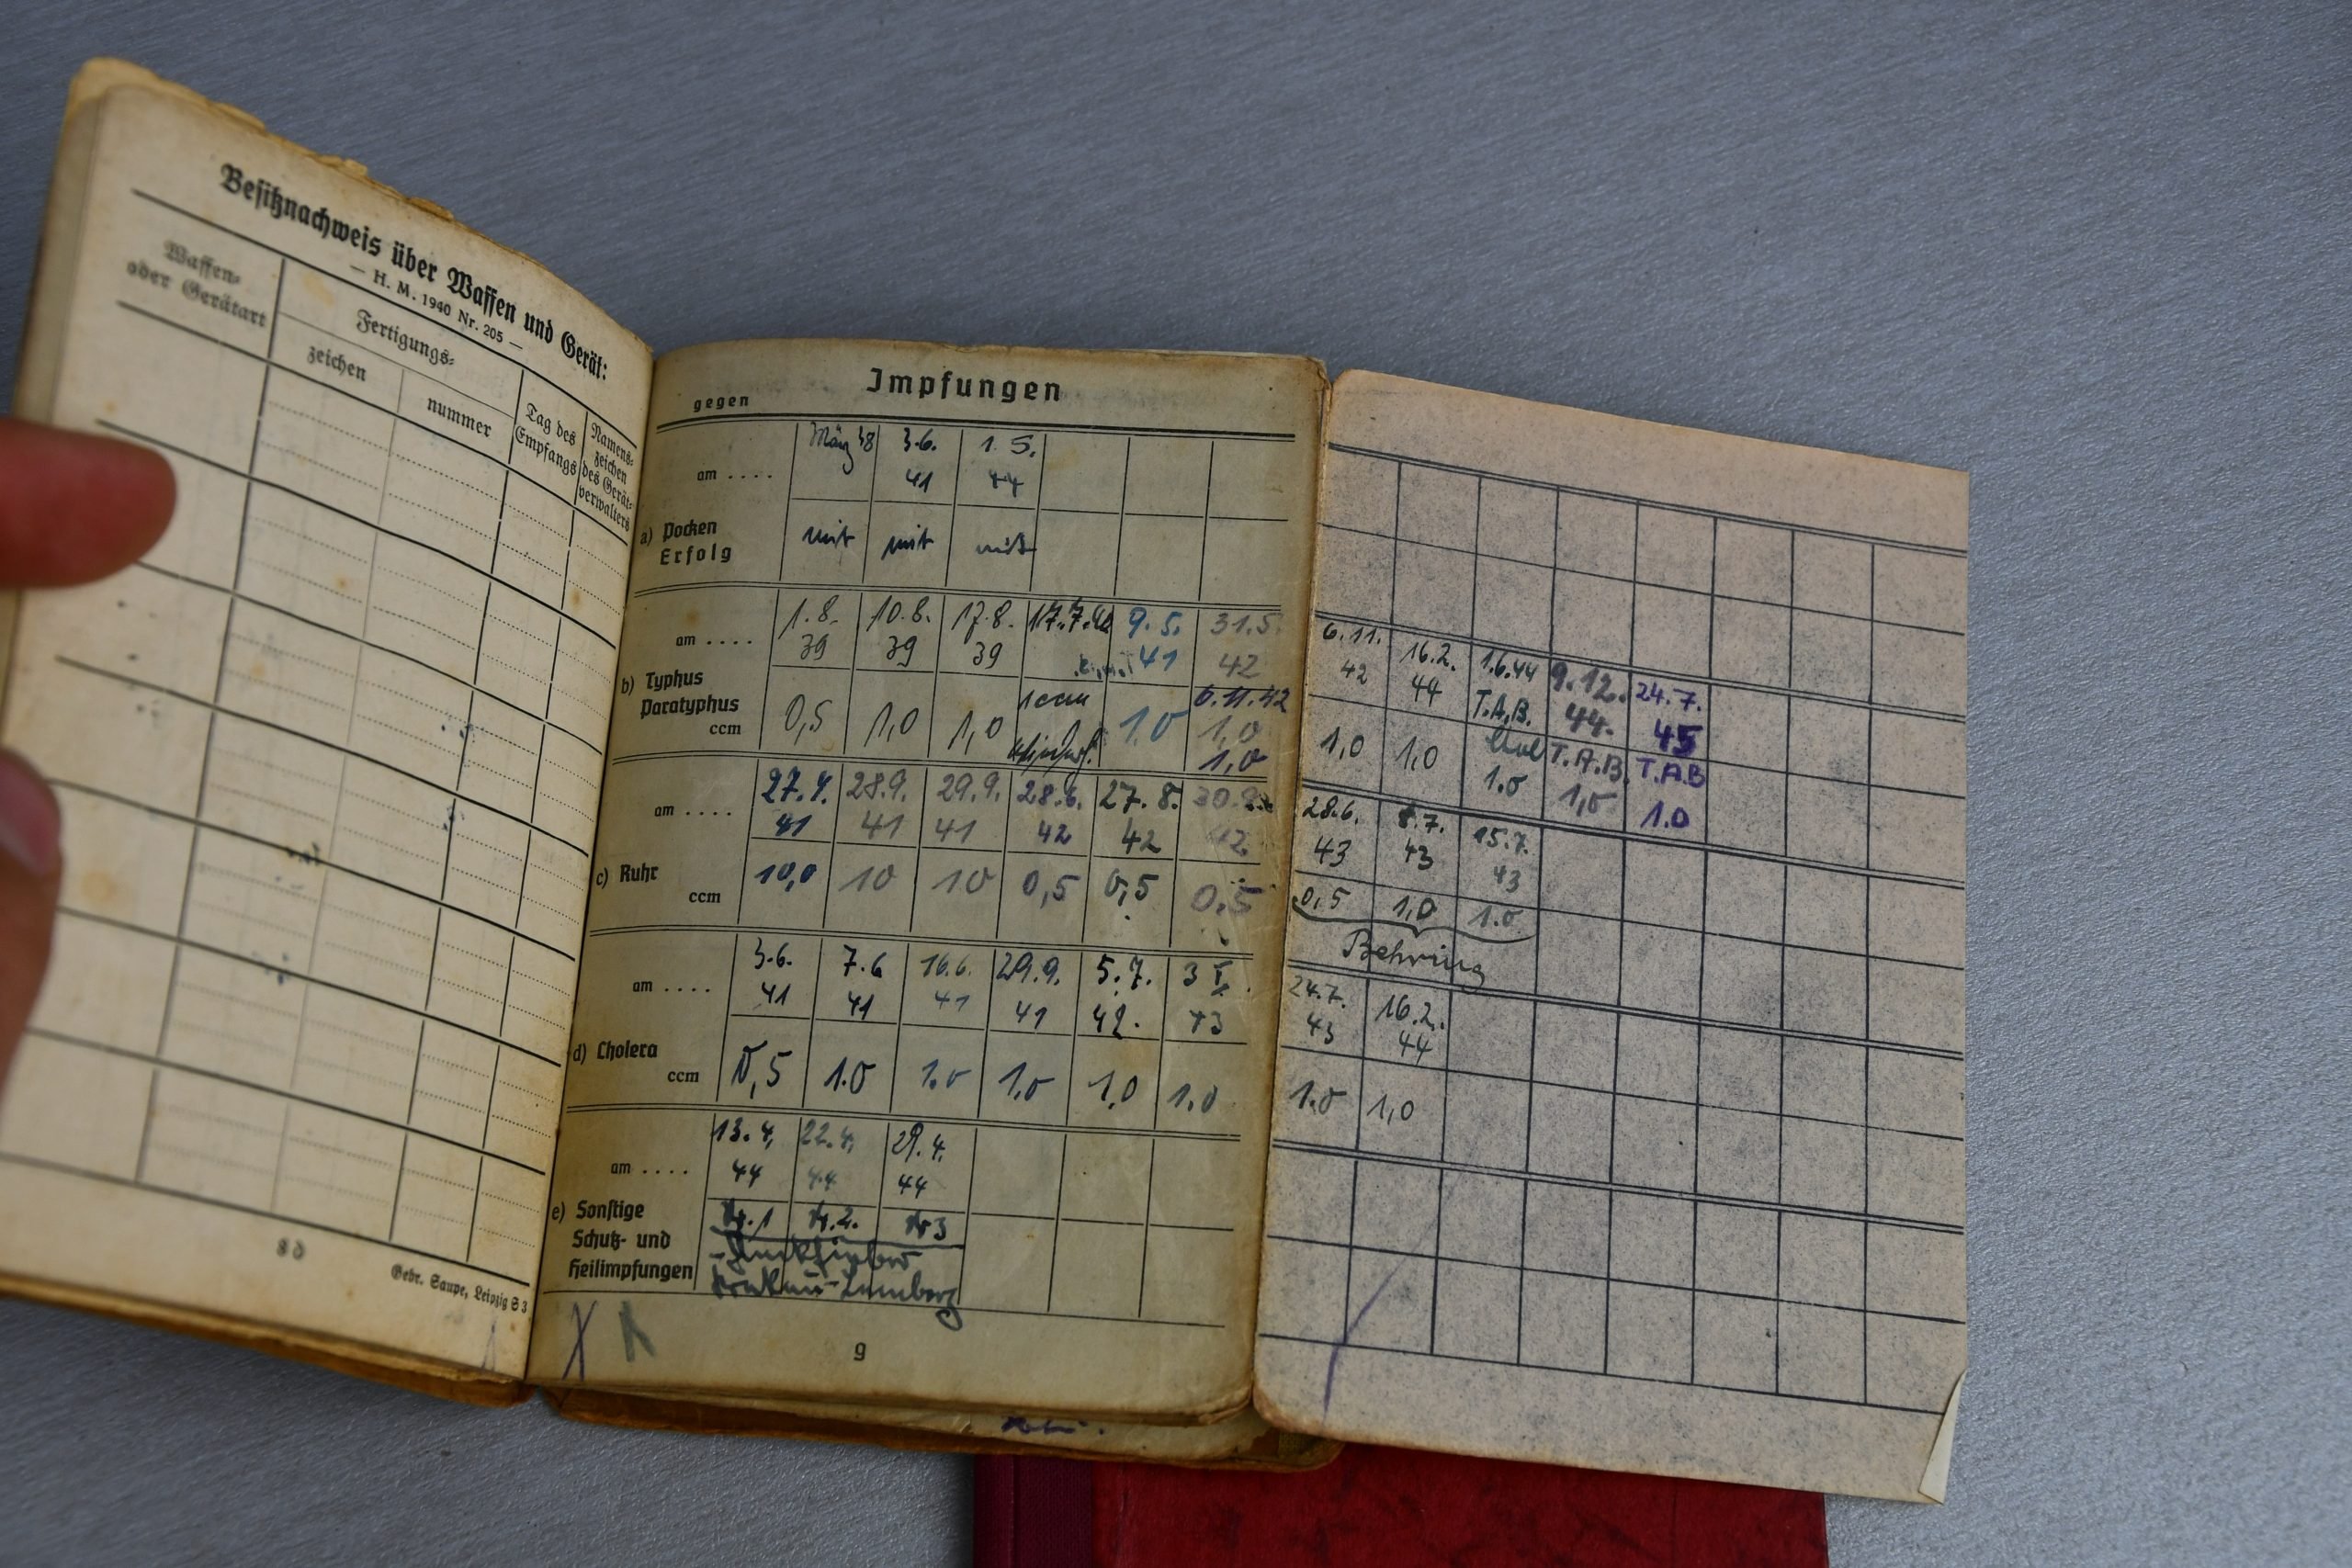 Besitznachweis über Waffen und Gerät:
— H. M. 1940 Nr. 205 —
Waffen-
oder Gerätart
Fertigungs-
zeichen
nummer
Tag des
Empfangs
Namens-
zeichen
des Gerät-
verwalters
8 d
Gebr. Saupe, Leipzig S 3
Impfungen
gegen
am . . . .
März 38 3.6. 1. 5.
41 44
a) Pocken
Erfolg
mit mit mit
am . . . .
1.8. 10.8. 17.8. 17.7.40 9.5. 31.5.
39 39 39 41 42
b) Typhus
Paratyphus
ccm
1ccm 6.11.42
0,5 1,0 1,0 1.0 1,0
1,0
am . . . .
27.9. 28.9. 29.9. 28.6. 27.8.
41 41 41 42 42 42
c) Ruhr
ccm
10,0 10 10 0,5 0,5 0,5
am . . . .
3.6. 7.6 16.6. 29.9. 5.7. 3
41 41 41 41 42. 43
d) Cholera
ccm
0,5 1.0 1.0 1,0 1,0 1.0
am . . . .
13.4. 22.4. 29.4.
44 44 44
e) Sonstige
Schutz- und
Heilimpfungen
Nr. 1 Nr. 2. Nr 3
Fleckfieber
Krakau-Lemberg
9
6.11. 16.2. 1.6.44 9.12. 24.7.
42 44 T.A.B. 44. 45
1,0 1,0 T.A.B. T.A.B
1.0 1,0 1.0
28.6. 8.7. 15.7.
43 43 43
0,5 1,0 1.0
Behring
24.7. 16.2.
43 44
1.0 1,0